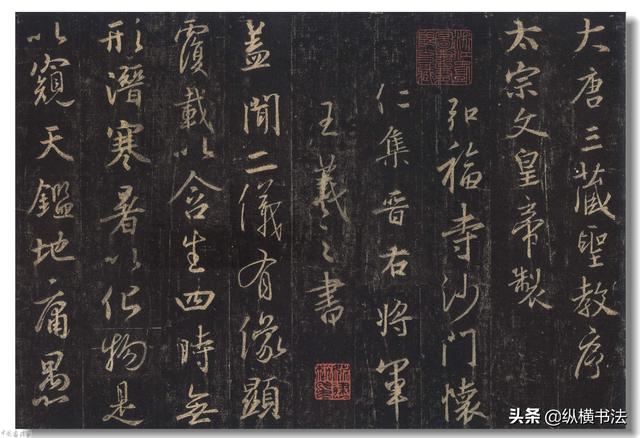 大唐三藏聖教序
太宗文皇帝製
弘福寺沙門懷
仁集晉右將軍
王羲之書
蓋聞二儀有像顯
覆載以含生四時無
形潛寒暑以化物是
以窺天鑑地庸愚
头条 @纵横书法